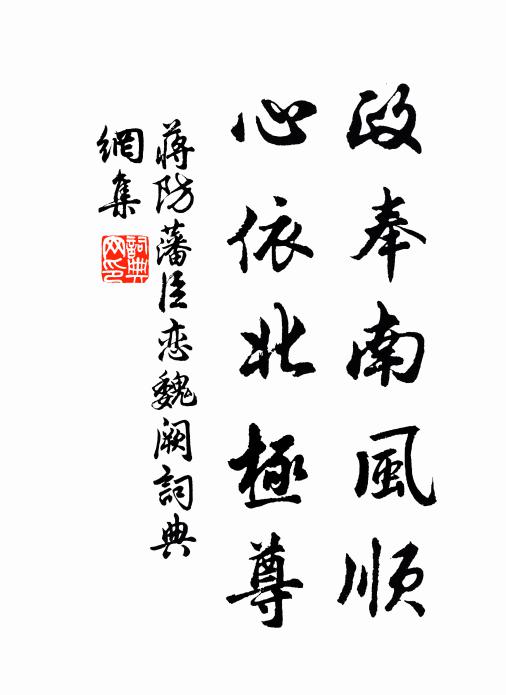 政奉南風順
心依北極尊
蔣防藩臣恋魏阙詞典
網集
詞典
网印